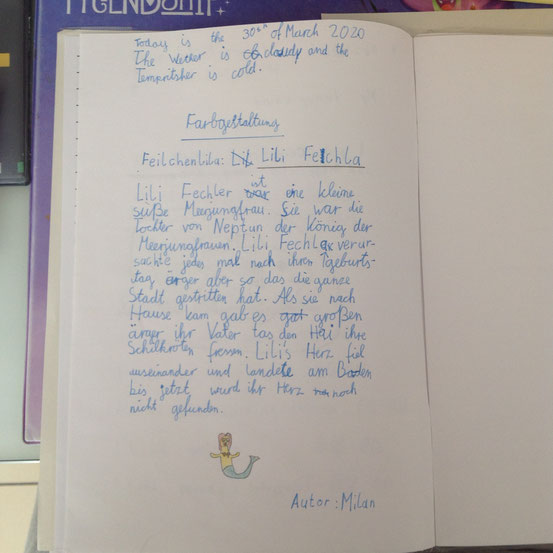 Today is the 30th of March 2020
The Wecker is cloudy and the
Tempritsher is cold.
Farbgestaltung
Feilchenlila: Lili Felchla
Lili Fechler ist eine kleine
süße Meerjungfrau. Sie war die
Tochter von Neptun der König der
Meerjungfrauen. Lili Fechla verur-
sachte jedes mal nach ihrem Geburts-
tag ärger aber so das die ganze
Stadt gestritten hat. Als sie nach
Hause kam gab es großen
ärger ihr Vater las den Hai ihre
Schilkröten fressen. Lilis Herz fiel
auseinander und landete am Boden
bis jetzt wurd ihr Herz noch
nicht gefunden.
Autor: Milan